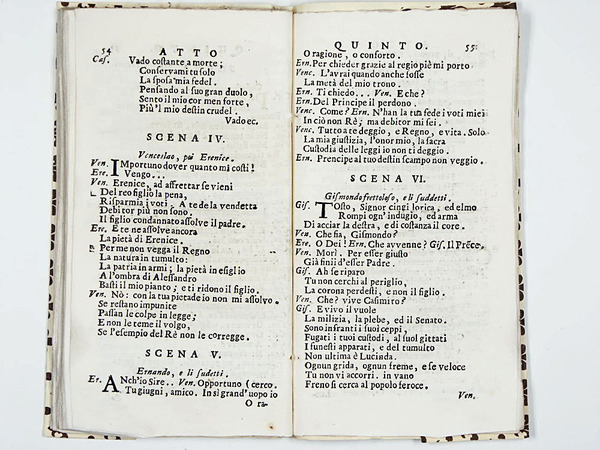 54 ATTO
Cas. Vado costante a morte;
Conservami tu solo
La sposa mia fedel.
Pensando al suo gran duolo,
Sento il mio cor men forte,
Più'l mio destin crudel.
Vado ec.
SCENA IV.
Venceslao, poi Erenice.
Ven. IMportuno dover quanto mi costi!
Ere. Vengo...
Ven. Erenice, ad affrettar se vieni
Del reo figlio la pena,
Risparmia i voti. A te da la vendetta
Debitor più non sono.
Il figlio condannato assolve il padre.
Ere. E te ne assolve ancora
La pietà di Erenice.
Per me non vegga il Regno
La natura in tumulto:
La patria in armi; la pietà in esiglio
A l'ombra di Alessandro
Basti il mio pianto; e ti ridono il figlio.
Ven. Nò: con la tua pietade io non mi assolvo.
Se restano impunite
Passan le colpe in legge;
E non le teme il volgo,
Se l'esempio del Rè non le corregge.
SCENA V.
Ernando, e li sudetti.
Er. ANch'io Sire.. Ven. Opportuno (cerco.
Tu giugni, amico. In sì grand'uopo io
O ra-
QUINTO. 55
O ragione, o conforto.
Ern. Per chieder grazie al regio piè mi porto
Venc. L'avrai quando anche fosse
La metà del mio trono.
Ern. Ti chiedo... Ven. E che?
Ern. Del Principe il perdono.
Venc. Come? Ern. N'han la tua fede i voti miei
In ciò non Rè; ma debitor mi sei.
Venc. Tutto a te deggio, e Regno, e vita. Solo
La mia giustizia, l'onor mio, la sacra
Custodia delle leggi io non ti deggio.
Ern. Prencipe al tuo destin scampo non veggio.
SCENA VI.
Gismondo frettoloso, e li suddetti.
Gis. TOsto, Signor cingi lorica, ed elmo
Rompi ogn' indugio, ed arma
Di acciar la destra, e di costanza il core.
Ven. Che fia, Gismondo?
Ere. O Dei! Ern. Che avvenne? Gis. Il Prēce.
Ven. Morì. Per esser giusto
Già finii d'esser Padre.
Gis. Ah se riparo
Tu non cerchi al periglio,
La corona perdesti, e non il figlio.
Ven. Che? vive Casimiro?
Gis. E vivo il vuole
La milizia, la plebe, ed il Senato.
Sono infranti i suoi ceppi,
Fugati i tuoi custodi, al suol gittati
I funesti apparati, e del tumulto
Non ultima è Lucinda.
Ognun grida, ognun freme, e se veloce
Tu non vi accorri. in vano
Freno si cerca al popolo feroce.
Ven.